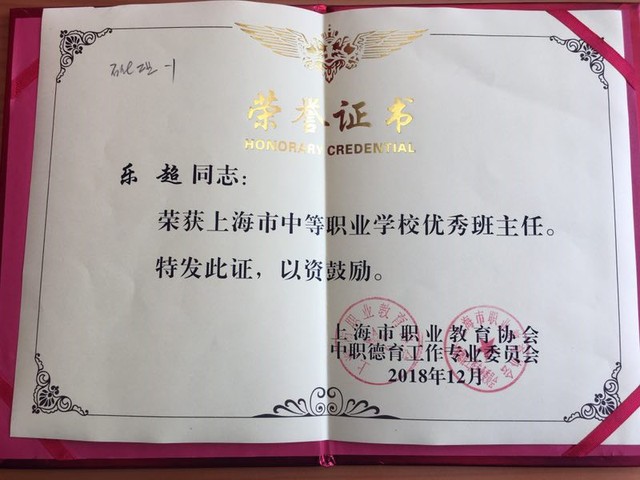 荣誉证书
HONORARY CREDENTIAL
乐 超 同志：
荣获上海市中等职业学校优秀班主任。
特发此证，以资鼓励。
上海市职业教育协会
中职德育工作专业委员会
2018年12月